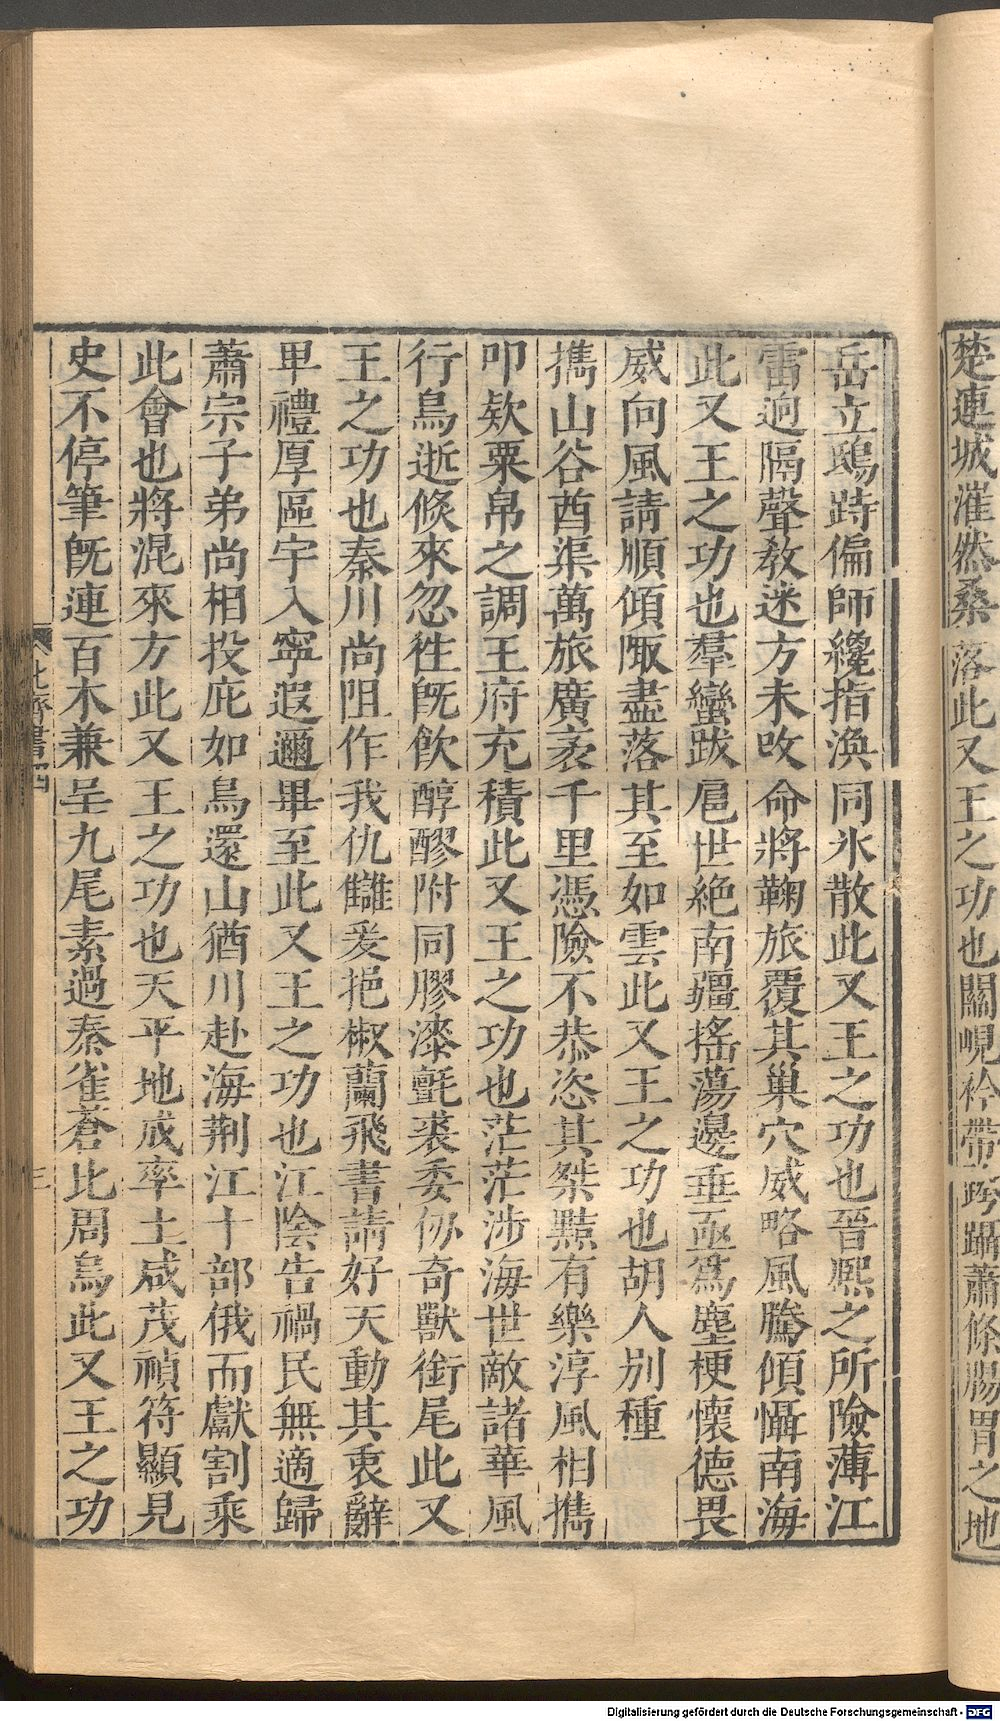 楚連城漼然桑落此又王之功也關峴衿帶跨躡蕭條腸胃之地
岳立鴟跱偏師纔指渙同氷散此又王之功也晉熙之所險薄江
雷迥隔聲教迷方未改命將鞠旅覆其巢穴威略風騰傾懾南海
此又王之功也羣蠻跋扈世絶南疆搖蕩邊垂亟爲塵梗懷德畏
威向風請順傾陬盡落其至如雲此又王之功也胡人別種
攜山谷酋渠萬旅廣袤千里憑險不恭恣其桀黠有樂淳風相攜
叩欵粟帛之調王府充積此又王之功也茫茫涉海世敵諸華風
行鳥逝倐來忽徃旣飮醇醪附同膠漆氈裘委仞奇獸銜尾此又
王之功也秦川尚阻作我仇讎爰挹椒蘭飛書請好天動其衷辭
卑禮厚區宇入寧遐邇畢至此又王之功也江陰告禍民無適歸
蕭宗子弟尚相投庇如鳥還山猶川赴海荆江十部俄而獻割乘
此會也將混來方此又王之功也天平地成率土咸茂禎符顯見
史不停筆旣連百木兼呈九尾素過秦雀蒼比周烏此又王之功
北齊書四
三
Digitalisierung gefördert durch die Deutsche Forschungsgemeinschaft - DFG